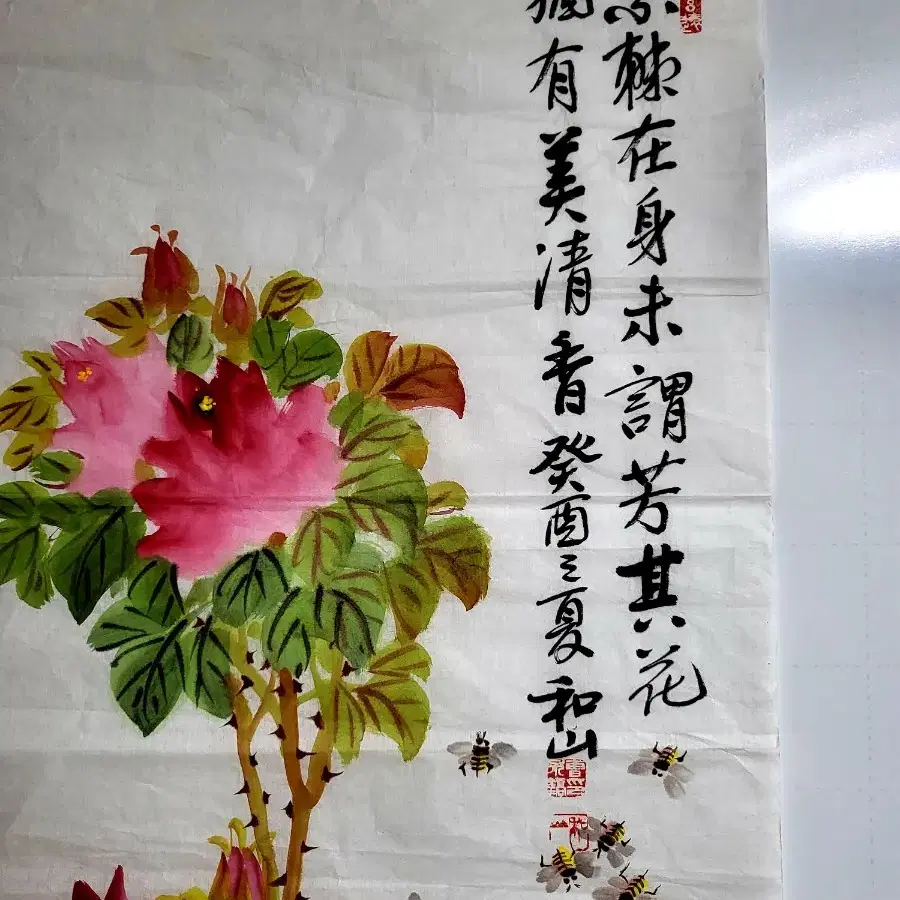 棘在身未謂芳其花
有美清香癸酉之夏和山